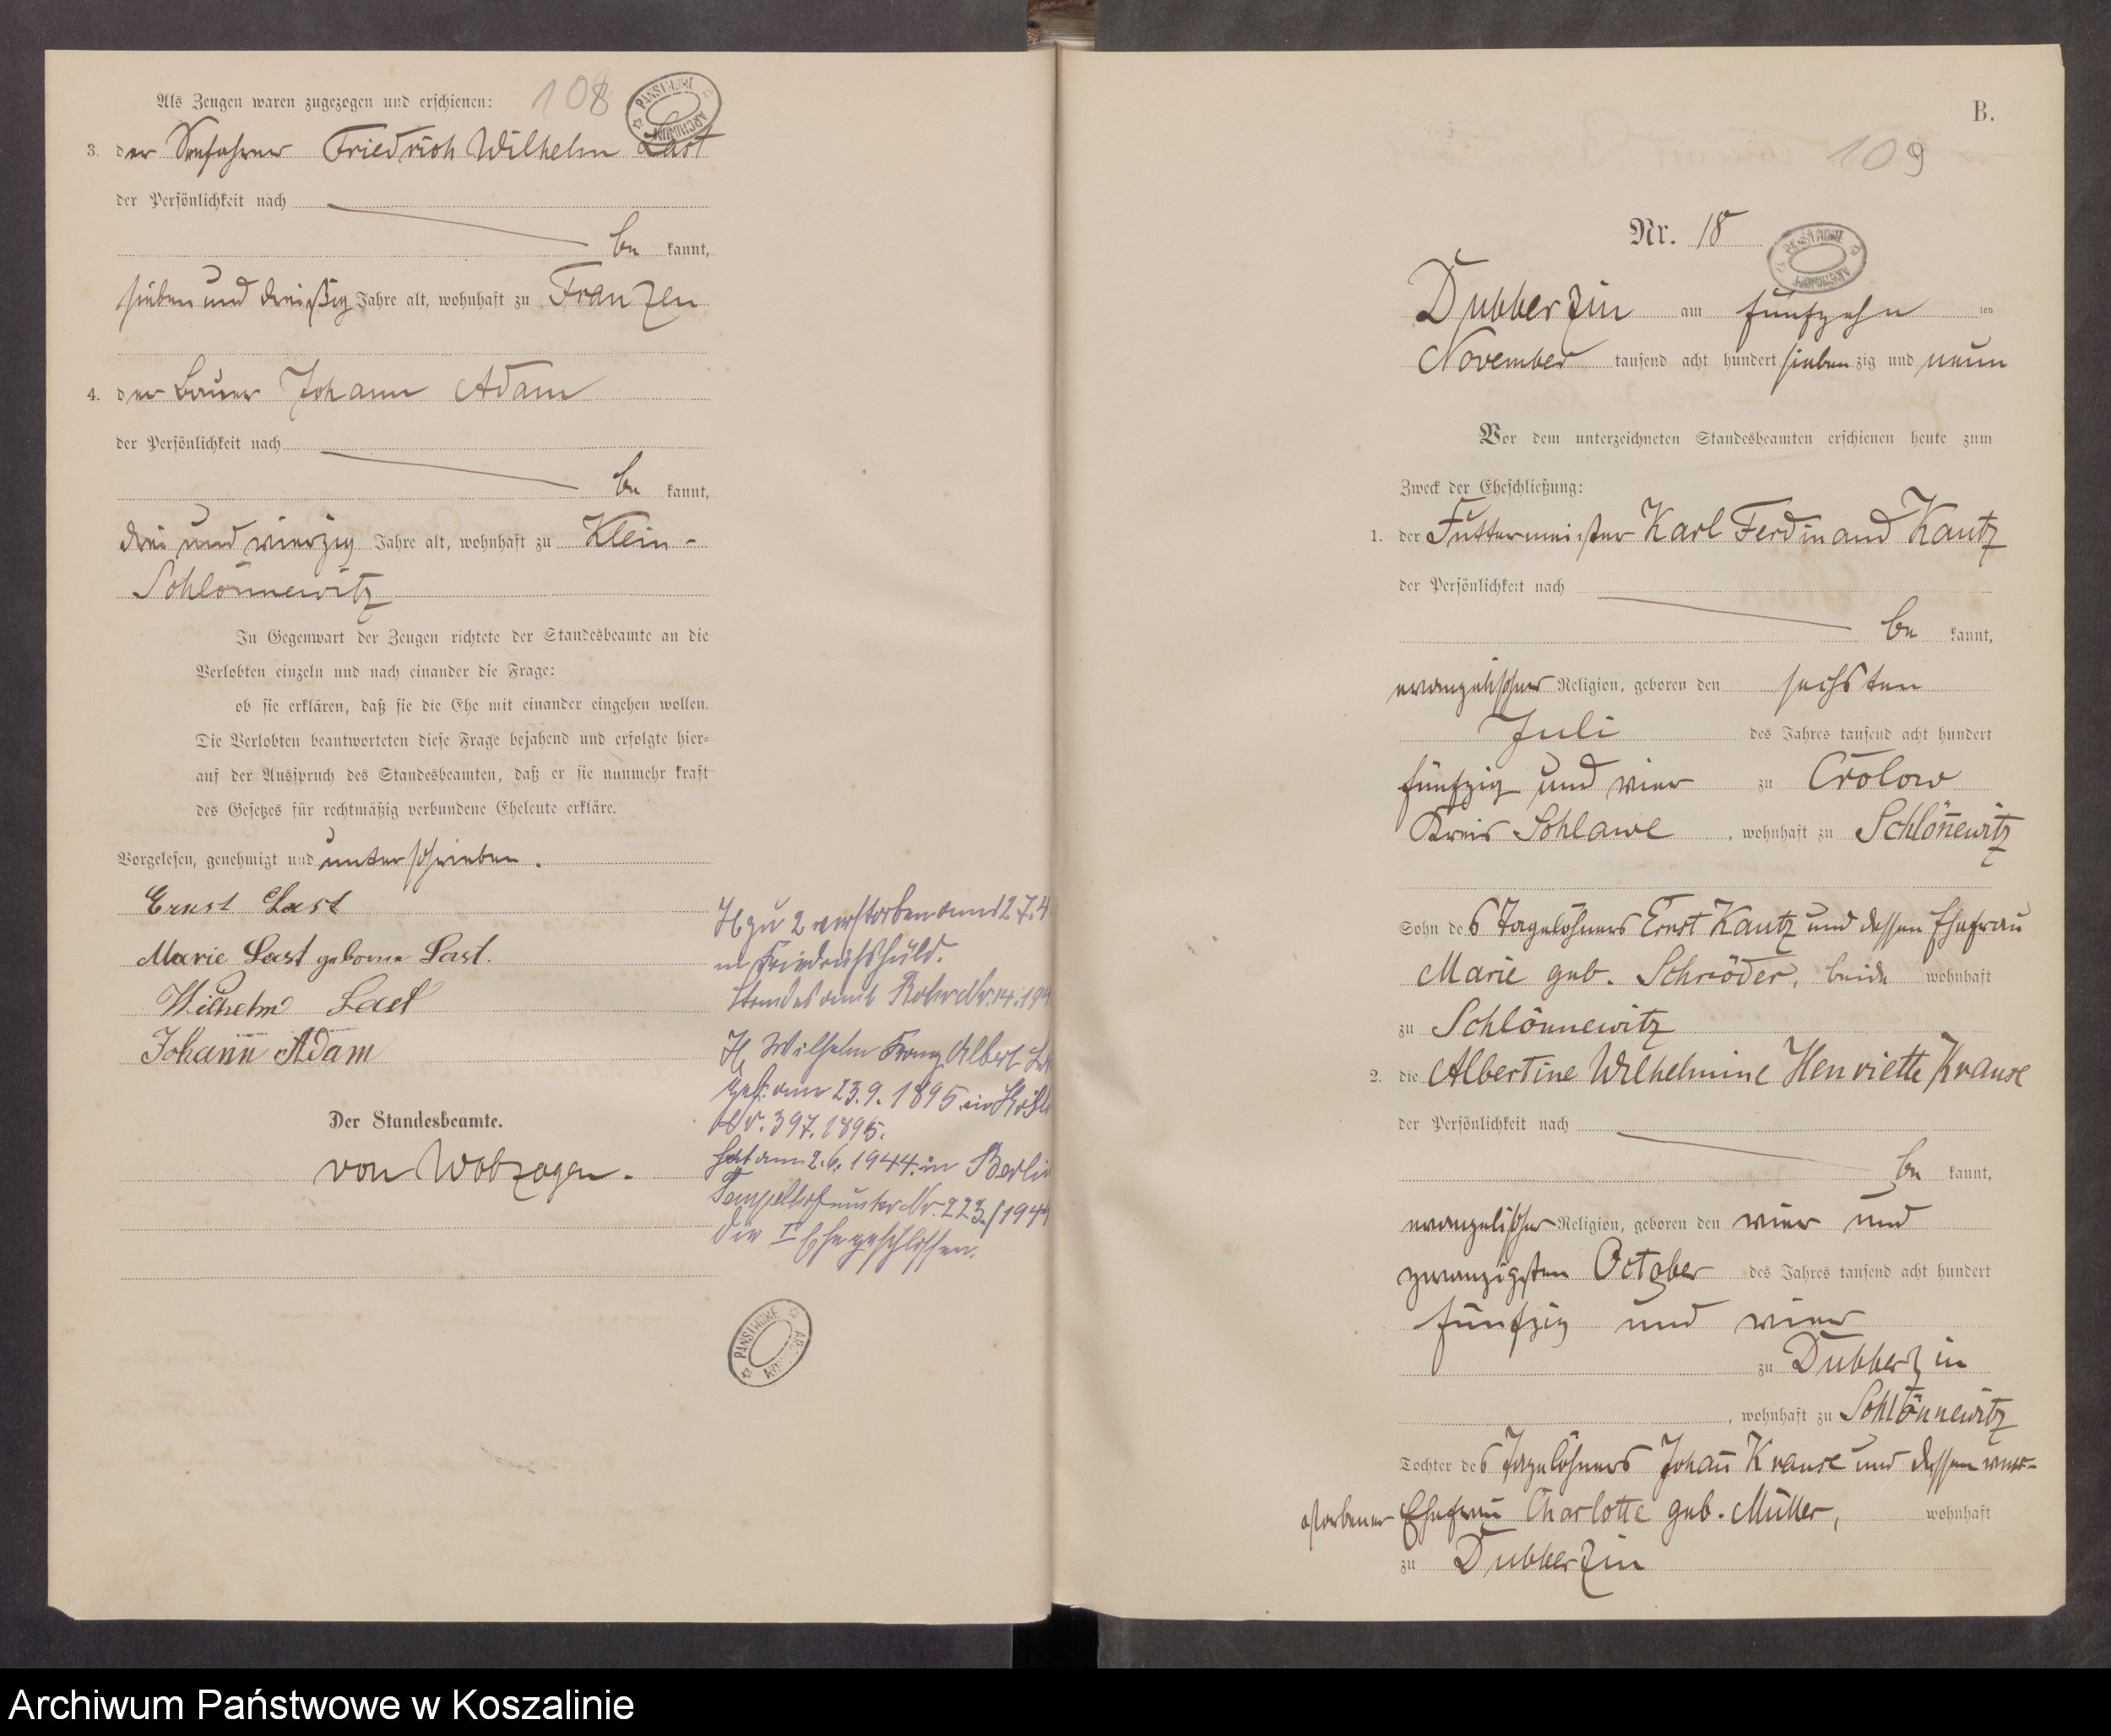 Als Zeugen waren zugezogen und erschienen:
108
PAŃSTWOWE ARCHIWUM
3. der Friedrich Wilhelm Last
der Persönlichkeit nach
be kannt,
sieben und dreißig Jahre alt, wohnhaft zu Franzen
4. der Bauer Johann Adam
der Persönlichkeit nach
be kannt,
drei und vierzig Jahre alt, wohnhaft zu Klein-
Schlönnewitz
In Gegenwart der Zeugen richtete der Standesbeamte an die
Verlobten einzeln und nach einander die Frage:
ob sie erklären, daß sie die Ehe mit einander eingehen wollen.
Die Verlobten beantworteten diese Frage bejahend und erfolgte hier=
auf der Ausspruch des Standesbeamten, daß er sie nunmehr kraft
des Gesetzes für rechtmäßig verbundene Eheleute erkläre.
Vorgelesen, genehmigt und unterschrieben.
Ernst Last
Marie Last geborne Last.
Wilhelm Last
Johann Adam
Der Standesbeamte.
von
H zu 2 verstorben am 12.7.4
in Friedrichshuld.
Standesamt Rohr Nr. 14.194
H. Wilhelm Franz Albert
geb. am 23.9.1895 in
Nr. 397.1895.
hat am 2.6.1944 in Berlin
Tempelhof unter Nr. 223/194
die I Ehe geschlossen.
PAŃSTWOWE ARCHIWUM
B.
109
Nr. 18
PAŃSTWOWE ARCHIWUM
Dubberzin am fünfzehn ten
November tausend acht hundert siebenzig und neun
Vor dem unterzeichneten Standesbeamten erschienen heute zum
Zweck der Eheschließung:
1. der Futtermeister Karl Ferdinand Kautz
der Persönlichkeit nach
be kannt,
evangelischer Religion, geboren den sechsten
Juli des Jahres tausend acht hundert
fünfzig und vier zu Crolow
Kreis Schlawe, wohnhaft zu Schlön̄ewitz
Sohn des Tagelöhners Ernst Kautz und dessen Ehefrau
Marie geb. Schröder, beide wohnhaft
zu Schlönnewitz
2. die Albertine Wilhelmine Henriette Krause
der Persönlichkeit nach
be kannt,
evangelischer Religion, geboren den vier und
zwanzigsten October des Jahres tausend acht hundert
fünfzig und vier
zu Dubberzin
, wohnhaft zu Schlönnewitz
Tochter des Tagelöhners Johan̄ Krause und dessen ver-
storbener Ehefrau Charlotte geb. Müller, wohnhaft
zu Dubberzin
Archiwum Państwowe w Koszalinie